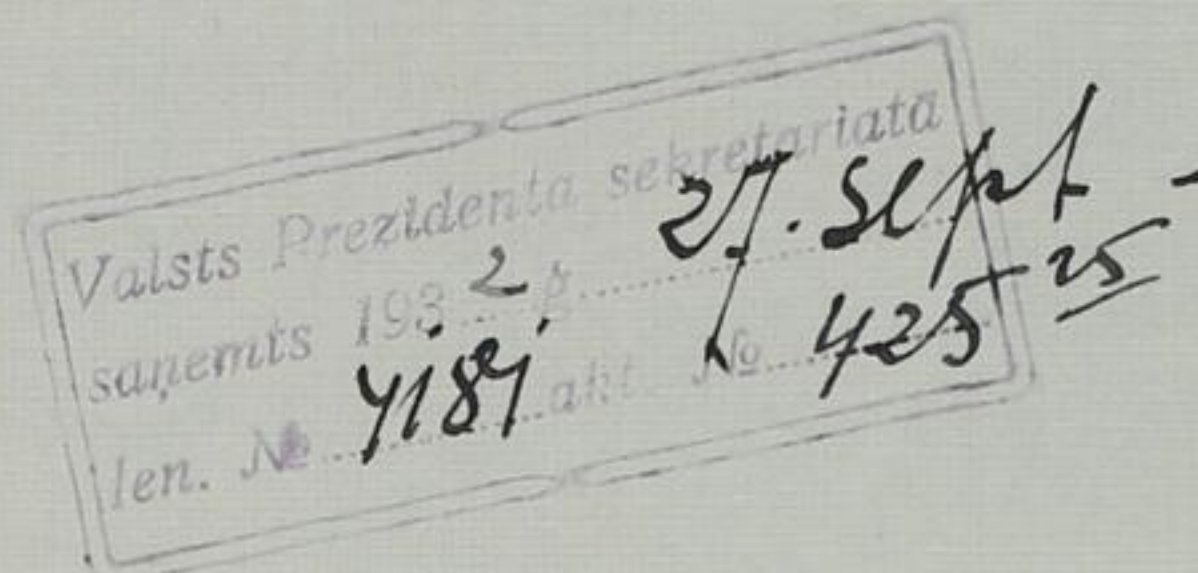 Valsts Prezidenta sekretariata
saņemts 1932 g. 27. Sept -
Ien. № akt. № 425 25